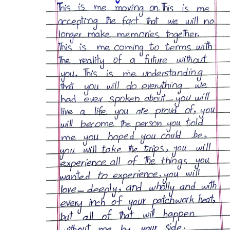 This is me moving on. This is me
accepting the fact that we will no
longer make memories together.
This is me coming to terms with
the reality of a future without
you. This is me understanding
that you will do everything we
had ever spoken about. you will
live a life you are proud of, you
will become the person you told
me you hoped you could be.
you will take the trips, you will
experience all of the things you
wanted to experience, you will
love deeply, and wholly and with
every inch of your patchwork heart,
but all of that will happen
without me by your side.